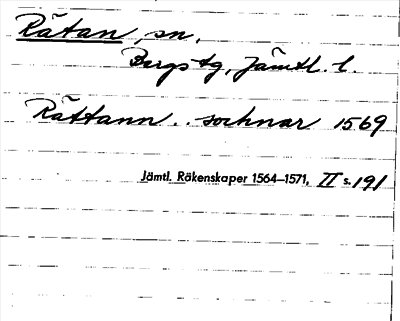 Rätan, sn.
Bergs tg, Jämtl. l.
Rättann .. sochnar 1569
Jämtl. Räkenskaper 1564–1571, II s. 191